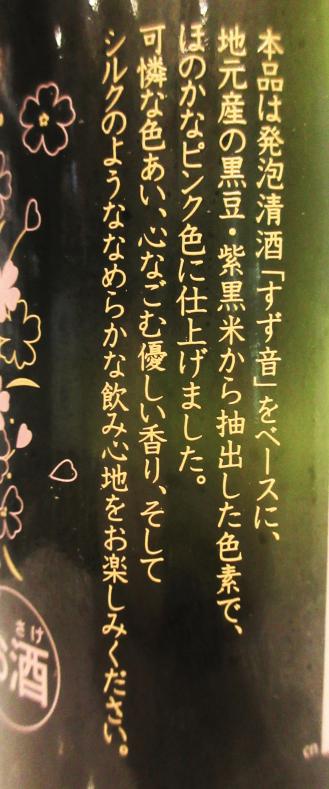 本品は発泡清酒「すず音」をベースに、
地元産の黒豆・紫黒米から抽出した色素で、
ほのかなピンク色に仕上げました。
可憐な色あい、心なごむ優しい香り、そして
シルクのようななめらかな飲み心地をお楽しみください。
さけ
お酒